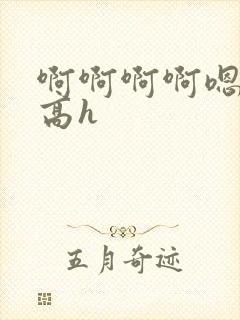 啊啊啊啊嗯
高h
五月奇迹